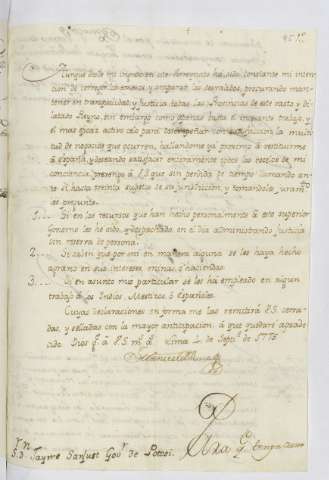 Aunque desde mi ingreso en este Virreynato ha sido constante mi inten-
cion de corregir los excesos, y amparar los agraviados, procurando man-
tener en tranquilidad, y justicia todas las Provincias de este vasto y di-
latado Reyno, sin embargo como apenas basta el incesante trabajo, y
el mas eficaz activo celo para desempeñar con satisfaccion la multi-
tud de negocios que ocurren, hallandome ya proximo á restituirme
á España, y deseando satisfacer enteramente los recelos de mi
conciencia, prevengo á que sin perdida de tiempo llamando an-
te si hasta treinta sugetos de su jurisdiccion, y tomandoles juram.to
les pregunte
1.... Si en los recursos que han hecho personalmente á este superior
Govierno les he oido, y despachado en el dia administrando justicia
sin reserva de persona.
2.... Si saben que por mi en manera alguna se les haya hecho
agravio en sus intereses, minas, ó haciendas.
3.... Si en asunto mio particular se les ha empleado en algun
trabajo á los Indios, Mestizos, ó Españoles.
Cuyas declaraciones en forma me las remitirá VS. cerra-
das, y selladas con la mayor anticipacion, á que quedaré agrade-
cido. Dios g.e á VS. m.s a.s Lima de Sept.e de 1776
S.D. Jayme Sanjust Gov.r de Potosi.